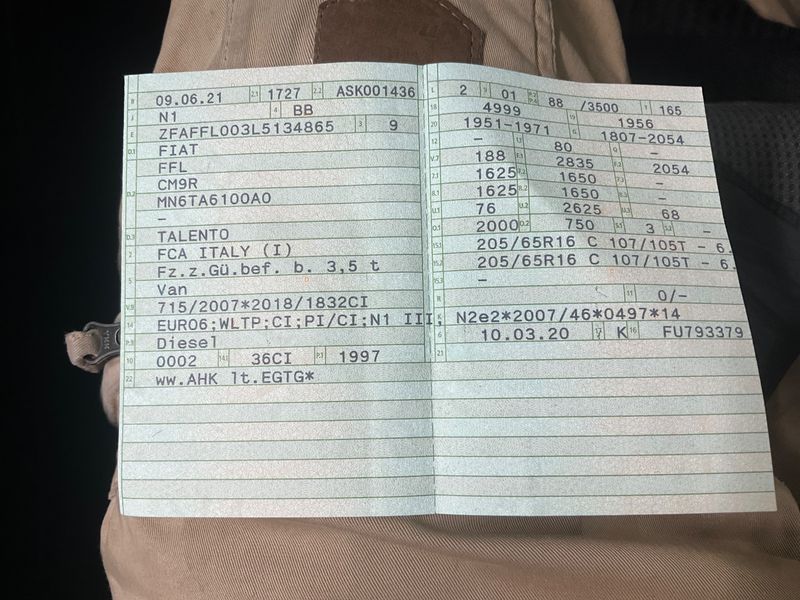 B 09.06.21 2.1 1727 2.2 ASK001436
J N1 4 BB
E ZFAFFL003L5134865 3 9
D.1 FIAT
FFL
D.2 CM9R
MN6TA6100A0
–
D.3 TALENTO
2 FCA ITALY (I)
5 Fz.z.Gü.bef. b. 3,5 t
Van
V.9 715/2007*2018/1832CI
14 EURO6;WLTP;CI;PI/CI;N1 III,
P.3 Diesel
10 0002 14.1 36CI P.1 1997
22 ww.AHK lt.EGTG*
L 2 9 01 P.2 P.4 88 /3500 T 165
18 4999 19 1956
20 1951–1971 G 1807–2054
12 – 13 80 Q –
V.7 188 F.1 2835 F.2 2054
7.1 1625 7.2 1650 7.3 –
8.1 1625 8.2 1650 8.3 –
U.1 76 U.2 2625 U.3 68
O.1 2000 O.2 750 S.1 3 S.2 –
15.1 205/65R16 C 107/105T – 6.
15.2 205/65R16 C 107/105T – 6.
15.3 –
R 11 0/–
K N2e2*2007/46*0497*14
6 10.03.20 17 K 16 FU793379
21